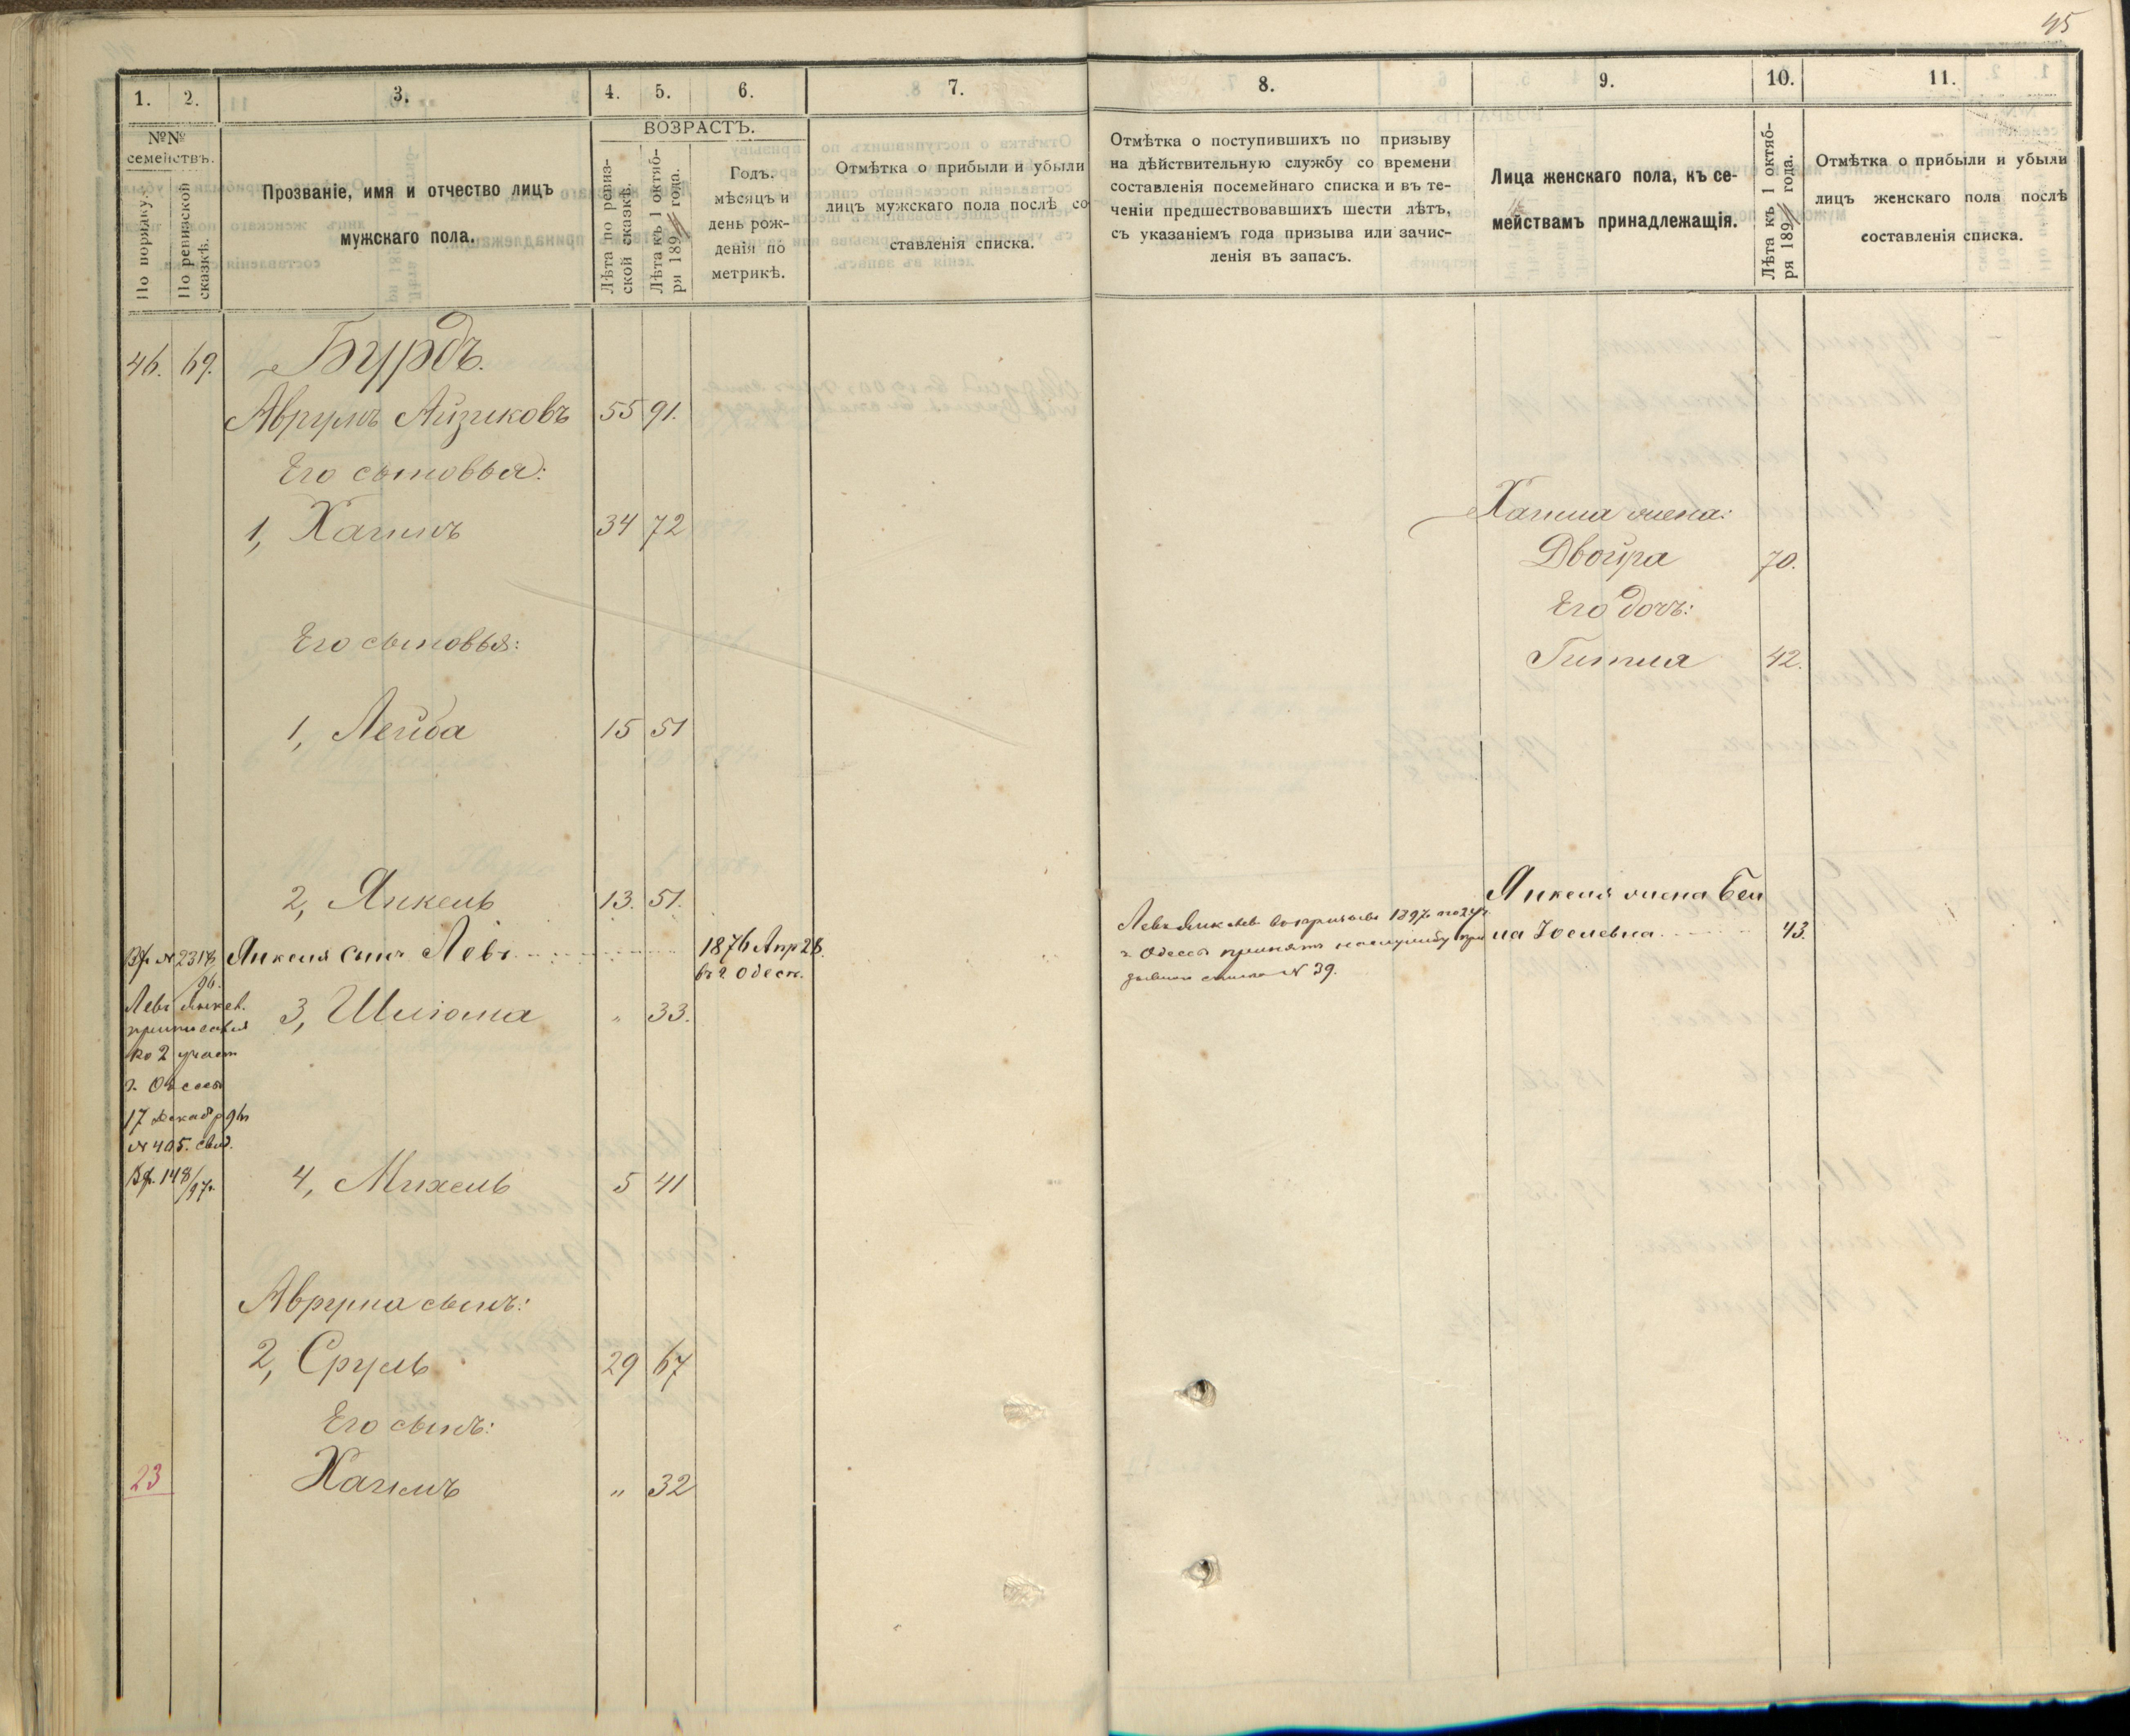 45
1. 2. 3. 4. 5. 6. 7. 8. 9. 10. 11.
№№ семействъ.
По порядку.
По ревизской сказкѣ.
Прозваніе, имя и отчество лицъ
мужскаго пола.
ВОЗРАСТЪ.
Лѣта по ревиз-
ской сказкѣ.
Лѣта къ 1 октяб-
ря 189 года.
Годъ.
мѣсяцъ и
день рож-
денія по
метрикѣ.
Отмѣтка о прибыли и убыли
лицъ мужскаго пола послѣ со
ставленія списка.
Отмѣтка о поступившихъ по призыву
на дѣйствительную службу со времени
составленія посемейнаго списка и въ те-
ченіи предшествовавшихъ шести лѣтъ,
съ указаніемъ года призыва или зачис-
ленія въ запасъ.
Лица женскаго пола, къ се-
мействамъ принадлежащія.
Лѣта къ 1 октяб-
ря 189 года.
Отмѣтка о прибыли и убыли
лицъ женскаго пола послѣ
составленія списка.
46. 69. Бурдъ.
Аврумъ Айзиковъ 55 91.
Его сыновья:
1, Хаимъ 34 72
Хаима жена:
Двойра 70.
Его дочь:
Гитля 42.
Его сыновья:
1, Лейба 15 51
2, Янкель 13. 51.
Янкеля жена Бей
ла Іослевна 43.
Вх. № 2318/96. Янкеля сынъ Левъ 1876 Апр 28.
въ г. Одесс.
Левъ Янкел. въ призывъ 1897 по 2 уч.
г. Одессы принятъ на службу при
зывной списокъ № 39.
Левъ Янкел.
приписался
ко 2 участ
г. Одессы
17 Декабр 96
№ 405. свид.
Вх. 148/97.
3, Шлiома " 33.
4, Михель 5 41
Аврума сынъ:
2, Сруль 29 67
Его сынъ:
23 Хаимъ " 32